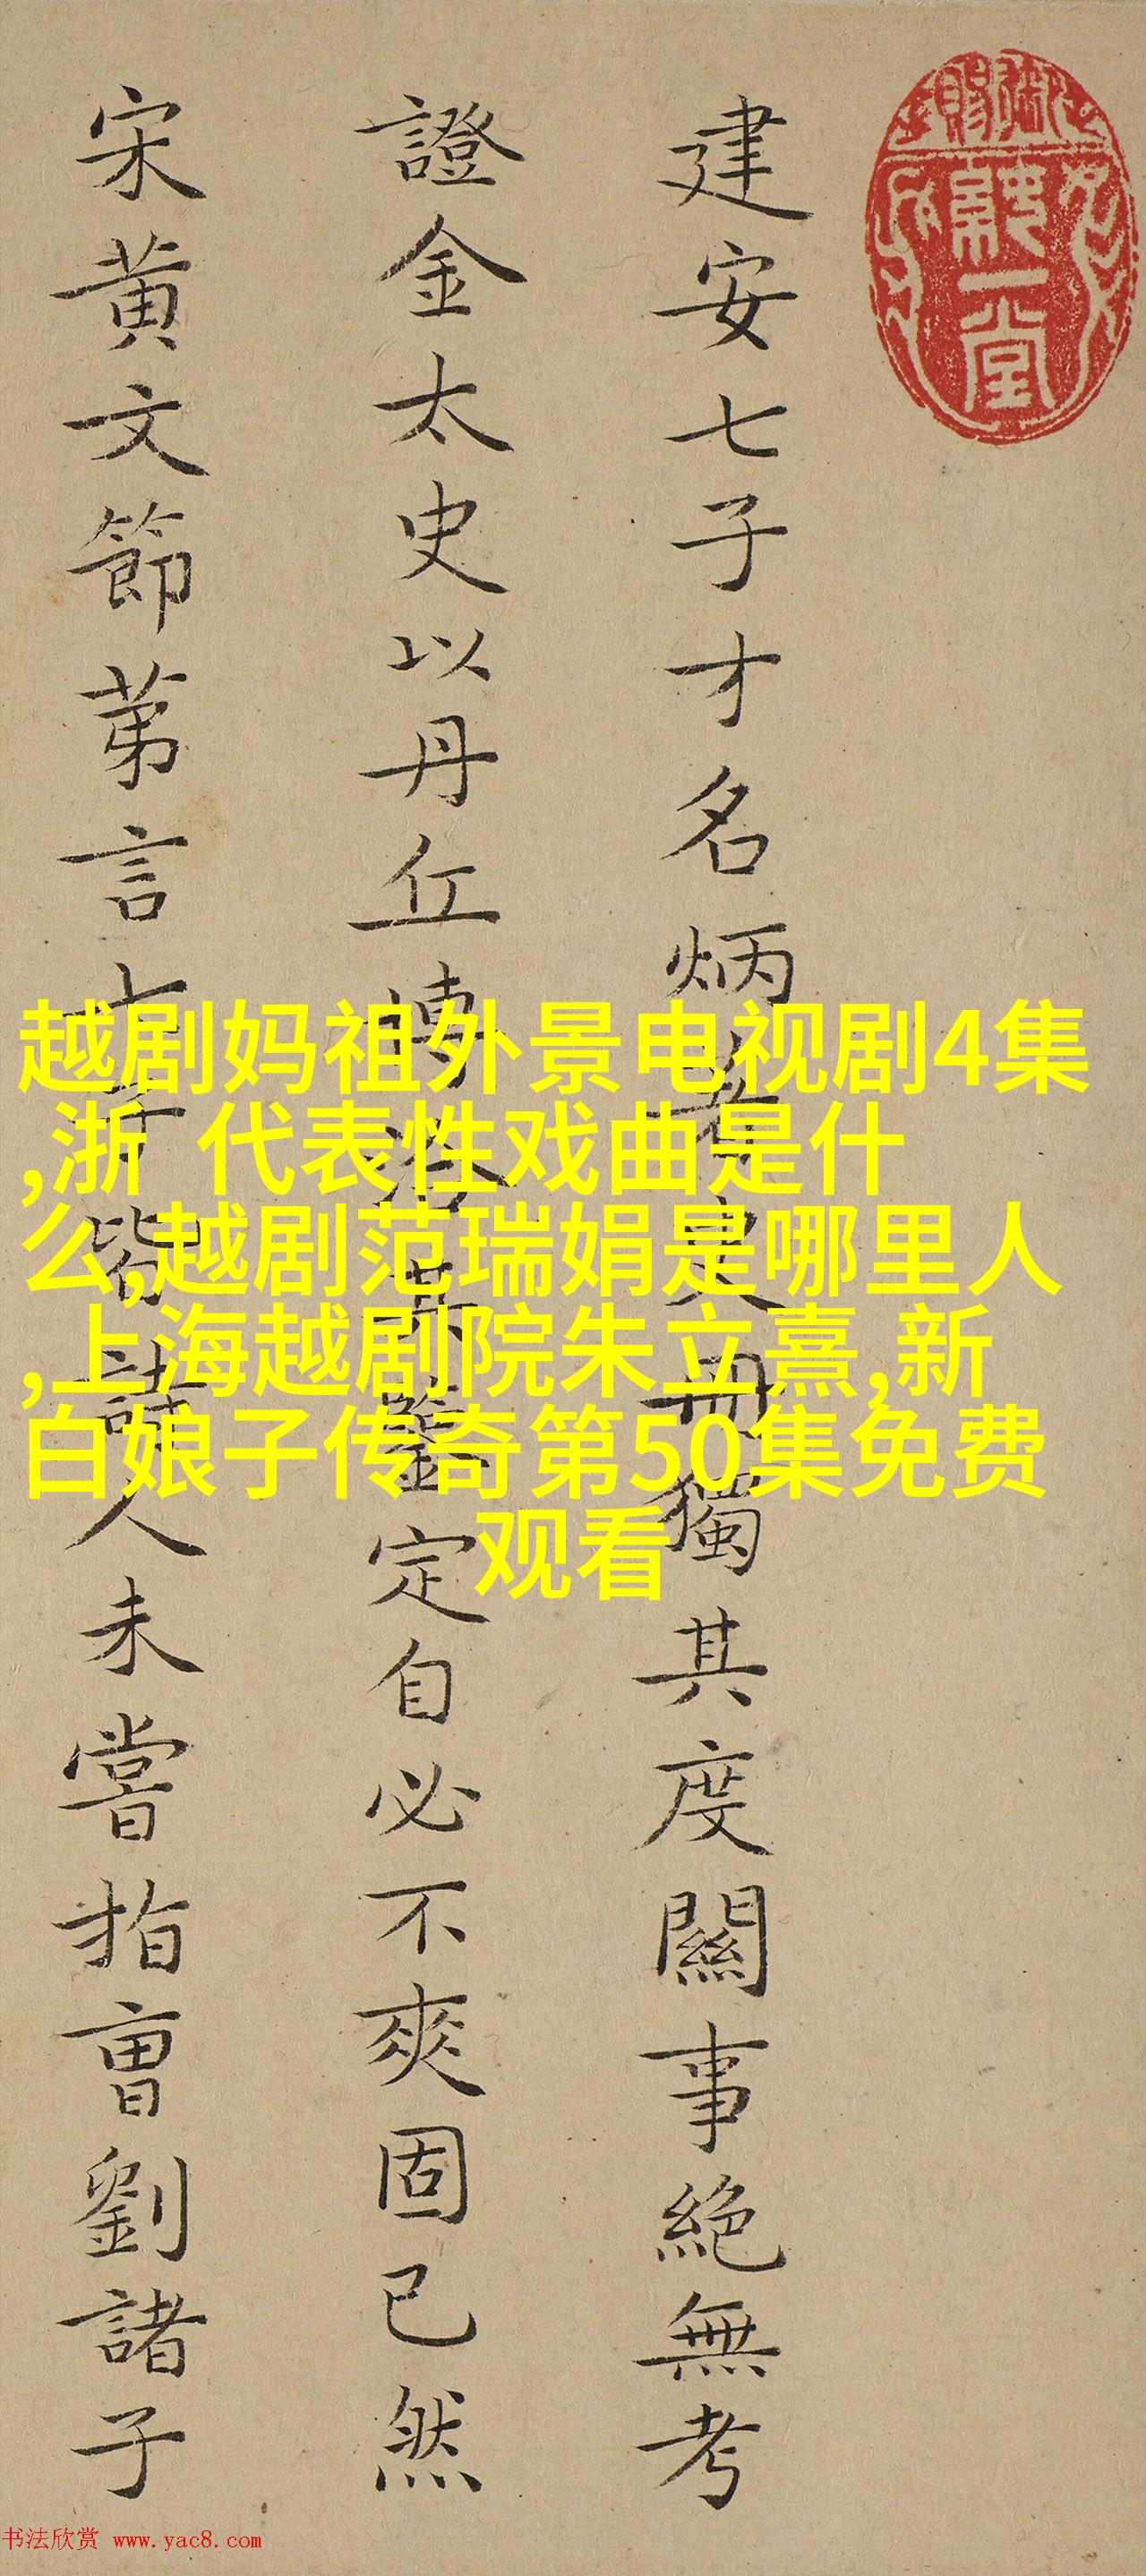 建安七子才名炳著是冊獨其度關事絕無考
證金太史以丹丘博洽其鑒定自必不爽固已然
宋黃文節苐言七子皆詩人未嘗指曹劉諸子
越剧妈祖外景电视剧4集
,浙 代表性戏曲是什
么,越剧范瑞娟是哪里人
,上海越剧院朱立熹,新
白娘子传奇第50集免费
观看
书法欣赏 www.yac8.com